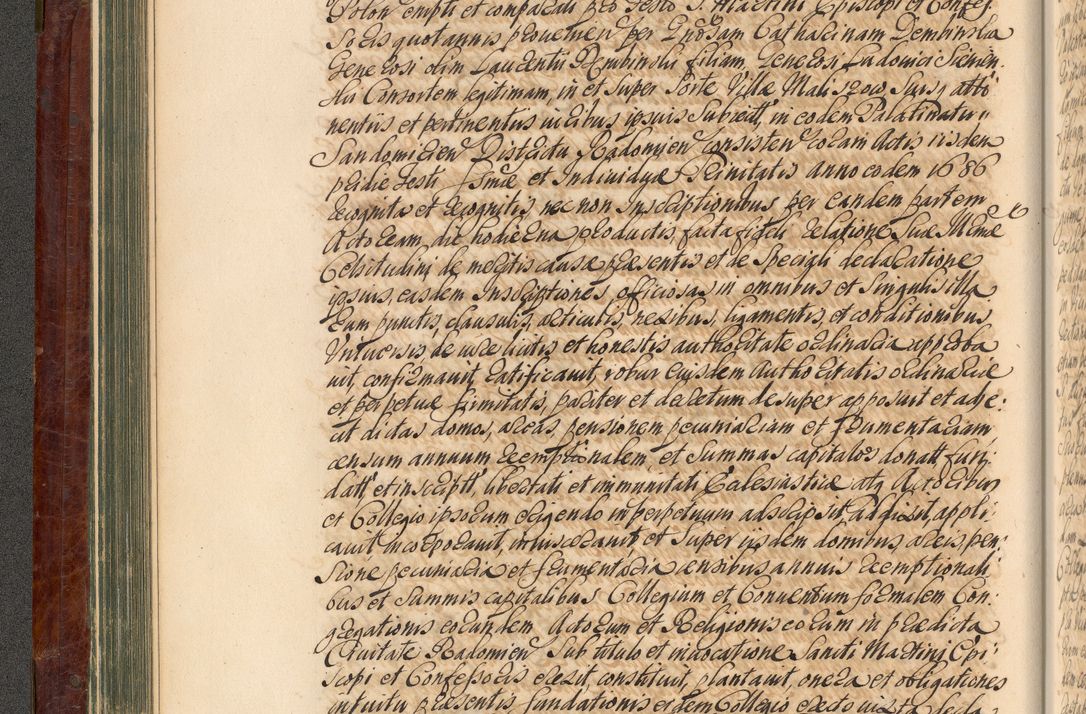 Polon empti et comparati pro Festo S. Martini Episcopi et Confes-
soris quotannis provenien per Gndsam Catharinam Dembinska
Generosi olim Laurentii Dembinski filiam, Generosi Ludovici Siemien-
ski Consortem legitimam, in et super sorte Villæ Maliszow suisq atti-
nentiis et pertinentiis in eibus ipsius subiectt, in eodem Palatinatu
Sandomirien Districtu Radomien consisten coram Actis iisdem
pridie Festi SSmæ et Individuæ Trinitatis anno eodem 1686
recognita et recognitis, nec non Inscriptionibus per eandem partem
Actoream die hodierna productis, facta fideli relatione Suæ Illmæ
Celsitudini de meritis causæ præsentis et de speciali declaratione
ipsius, easdem Inscriptiones officiosas in omnibus et singulis illa-
rum punctis, clausulis, articulis, nexibus, ligamentis, et conditionibus
Universis de iure licitis et honestis authoritate ordinaria approba-
vit, confirmavit, ratificavit, robur eiusdem Authoritatis ordinariæ
et perpetuæ firmitatis, pariter et decretum desuper apposuit et adje-
cit dictas domos, areas, pensionem pecuniariam et frumentariam
censum annuum reemptionalem, et summas capitales donatt, fun-
datt et inscriptt, libertati et immunitati Ecclesiasticæ atq Actoribus
et Collegio ipsorum erigendo in perpetuum adscripsit, adiunxit, appli-
cavit, incorporavit, invisceravit et super iisdem domibus, areis, pen-
sione pecuniaria et frumentaria censibus annuis reemptionali-
bus et summis capitalibus Collegium et Conventum formalem Con-
gregationis eorundem Actorum et Religionis eorum in prædicta
Civitate Radomien sub titulo et invocatione Sancti Martini Epi-
scopi et Confessoris erexit, constituit, plantavit, onera et obligationes
intuitu præsentis fundationis eidem Collegio exequi iuxta decla-